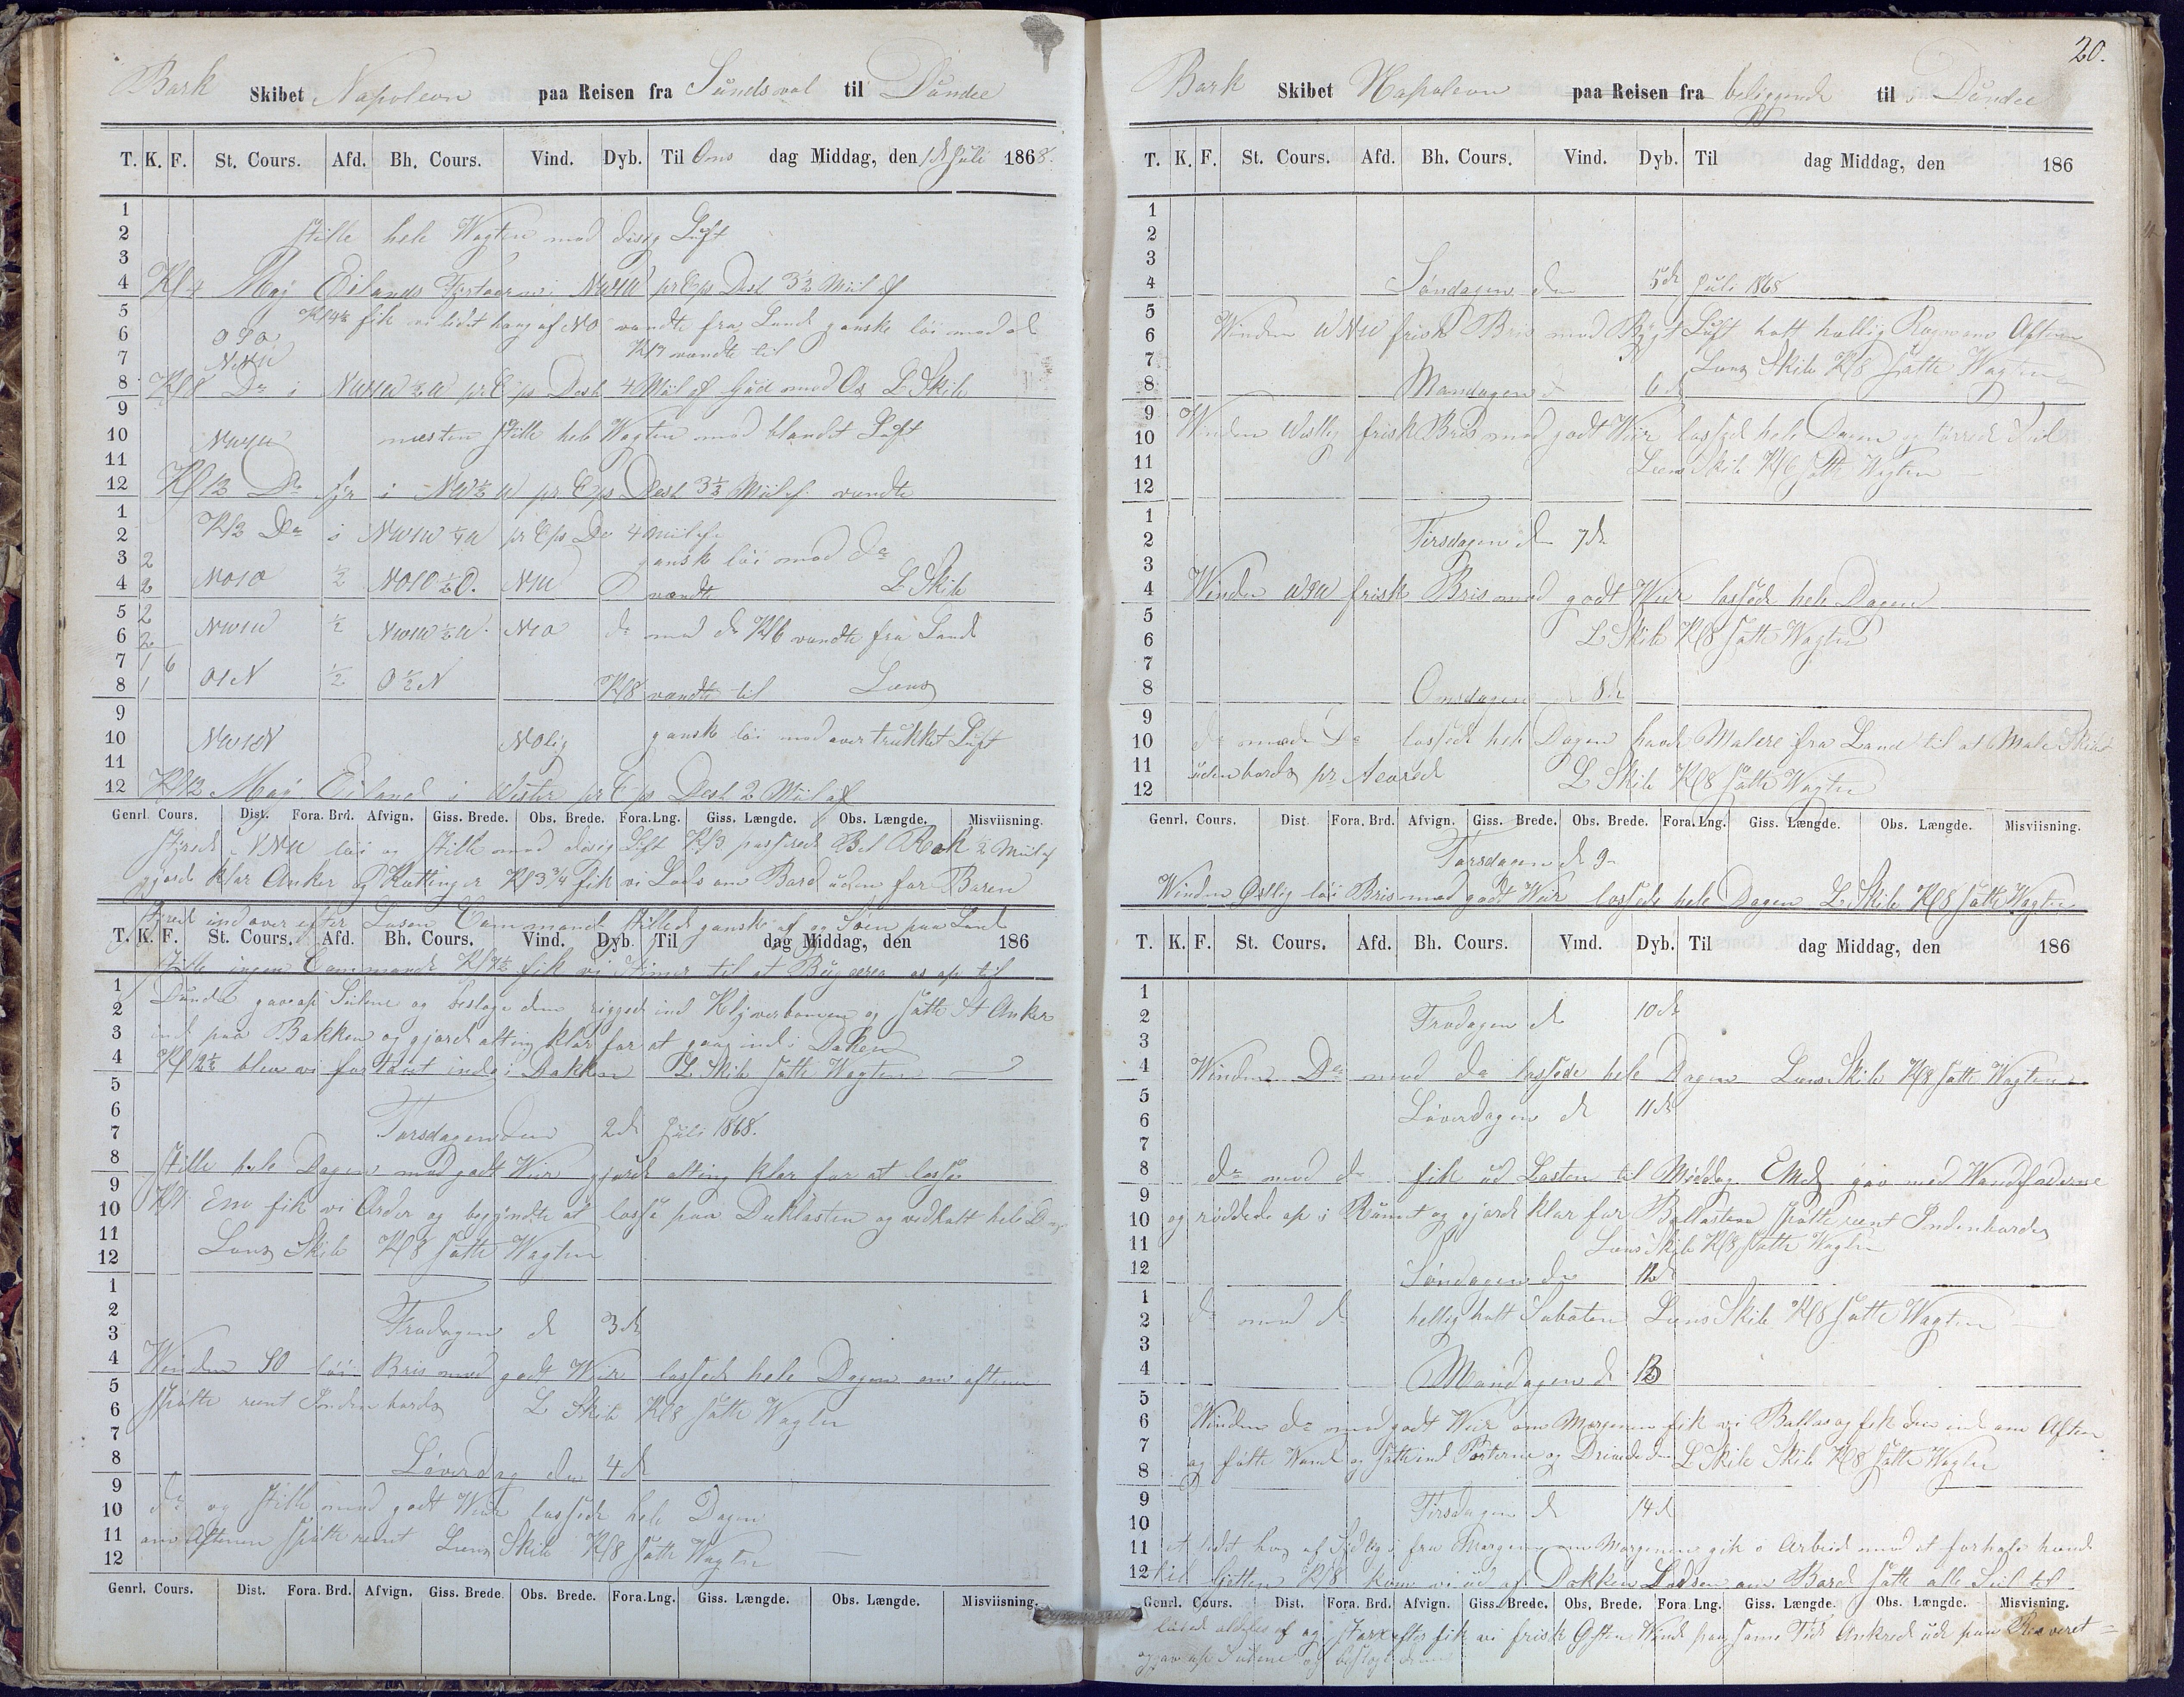 Bark Skibet Napoleon paa Reisen fra Sundsval til Dundee
T. K. F. St. Cours. Afd. Bh. Cours. Vind. Dyb. Til Ons dag Middag, den 1d Juli 1868.
1
2 stille hele Wagten med disig Luft
3
4 Kl 4 Maj Eilands Fyrtaarn i NW1W pr Cps Dest 3½ Miil af
5 Kl 4½ fik vi lidet häng af NO vendte fra Land ganske löi med
6 O1O Kl 7 vendte til
7 NNW
8 Kl 8 Do i NW1W ½ W pr Cps Dest 4 Miil af L Skib
9
10 NW1W næsten stille hele Wagten med blandet Luft
11
12 Kl 12 Do i NW½W pr Cps Dest 3½ Miil af vendte
1 Kl 2 Do i NW1W ¼ W pr Cps De 4 Miil af
2
3 2 ganske löi med do
4 2 NO1O ½ NO1O ½ O. N1W vendte L Skib
5 2
6 2 NW1W ½ NW1W ½ W. N1O do med do Kl 6 vendte fra Land
7 1 6
8 1 O1N ½ O ½ N Kl 8 vendte til Læns
9
10 NW1N NOlig ganske löi med overtrukket Luft
11
12 Kl 12 Maj Eiland i Wister pr Cps Dest 2 Miil af
Genrl. Cours. Dist. Fora. Brd. Afvign. Giss. Brede. Obs. Brede. Fora.Lng. Giss. Længde. Obs. Længde. Misviisning.
styrede NNW löi og stille med disig Luft Kl 3 passerede Bel Rok ½ Miil af
gjorde klar Anker og Kættinger Kl 3¾ fik vi Lods om Bord uden for Baren
styrede indover efter Losen Commando stillede ganske af og Söen paa Land
T. K. F. St. Cours. Afd. Bh. Cours. Vind. Dyb. Til dag Middag, den 186
stille ingen Commando fik vi Stimer til at Bugcera os op til
1 Dundee gav op Seilene og beslog dem riggede ind Klyverbomen og satte St Anker
2
3 ind paa Bakken og gjorde alting klar for at gaa ind i Doken
4 Kl 12½ blev vi fortöiet inde i Dokken L Skib satte Wagten
5
6
7 Torsdagen den 2d Juli 1868.
8 stille hele Dagen med godt Weir gjorde alting klar for at losse
9
10 Kl 1 Em fik vi Order og begyndte at losse paa Dæklasten og vedholt hele Dag
11
12 Læns Skib Kl 8 satte Wagten
1
2 Fredagen d 3d
3
4 Winden SO löi Bris med godt Weir lossede hele Dagen om aftenen
5
6 spölte rent Indenbords L Skib Kl 8 satte Wagten
7
8 Löverdag den 4d
9
10 do og stille med godt Weir lossede hele Dagen
11 om Aftenen spölte rent Læns Skib Kl 8 satte Wagten
12
Genrl. Cours. Dist. Fora. Brd. Afvign. Giss. Brede. Obs. Brede. Fora.Lng. Giss. Længde. Obs. Længde. Misviisning.
20.
Bark Skibet Napoleon paa Reisen fra beligende til i Dundee
T. K. F. St. Cours. Afd. Bh. Cours. Vind. Dyb. Til dag Middag, den 186
1
2
3
4 Söndagen den 5d Juli 1868
5
6 Winden WNW frisk Bris med Bygt Luft holt hellig Aftenen
7 Læns Skib Kl 8 satte Wagten
8 Mandagen d 6d
9
10 Winden Westlig frisk Bris med godt Weir lossede hele Dagen og törrede Seil
11 Læns Skib Kl 8 satte Wagten
12
1
2 Tirsdagen d 7d
3
4 Winden WSW frisk Bris med godt Weir lossede hele Dagen
5
6 L Skib Kl 8 satte Wagten
7
8 Onsdagen 8d
9
10 do med Do lossede hele Dagen havde Malere fra Land til at Male Skibet
11 udenbords pr Acored L Skib Kl 8 satte Wagten
12
Genrl. Cours. Dist. Fora. Brd. Afvign. Giss. Brede. Obs. Brede. Fora.Lng. Giss. Længde. Obs. Længde. Misviisning.
Torsdagen d 9
Winden Östlig löi Bris med godt Weir lossede hele Dagen L Skib Kl 8 satte Wagten
T. K. F. St. Cours. Afd. Bh. Cours. Vind. Dyb. Til dag Middag, den 186
1
2 Fredagen d 10d
3
4 Winden Do med do lossede hele Dagen Læns Skib Kl 8 satte Wagten
5
6 Löverdagen d 11d
7
8 do med do fik ud Lasten til Middag EMd gav med Wandfaderne
9
10 og röddede op i Rummet og gjorde klar for Ballasten spölte rent Indenbordes
11 Læns Skib Kl 8 satte Wagten
12 Söndagen d 12d
1
2 do med d hellig holt Sabaten Læns Skib Kl 8 satte Wagten
3
4 Mandagen d 13
5
6 Winden do med godt Weir om Morgenen fik vi Ballas og fik den ind om Aften
7
8 og fölte Wand og satte ind Porterne og Drivede dem L Skib Skib Kl 8 satte Wagten
9
10 Tirsdagen d 14d
11 et lidet hæng af Sydlig fra Morgenen om Morgenen gik i Arbeid med at forhale hende
12 til Kl 8 kom vi ud af Dokken Lodsen om Bord satte alle Seil til
Genrl. Cours. Dist. Fora. Brd. Afvign. Giss. Brede. Obs. Brede. Fora Lng. Giss. Længde. Obs. Længde. Misviisning.
aldeles af og strax efter fik vi frisk Östen Wind paa samme Tid Ankrede ude paa Reveret
og gav op Seilene og beslog dem